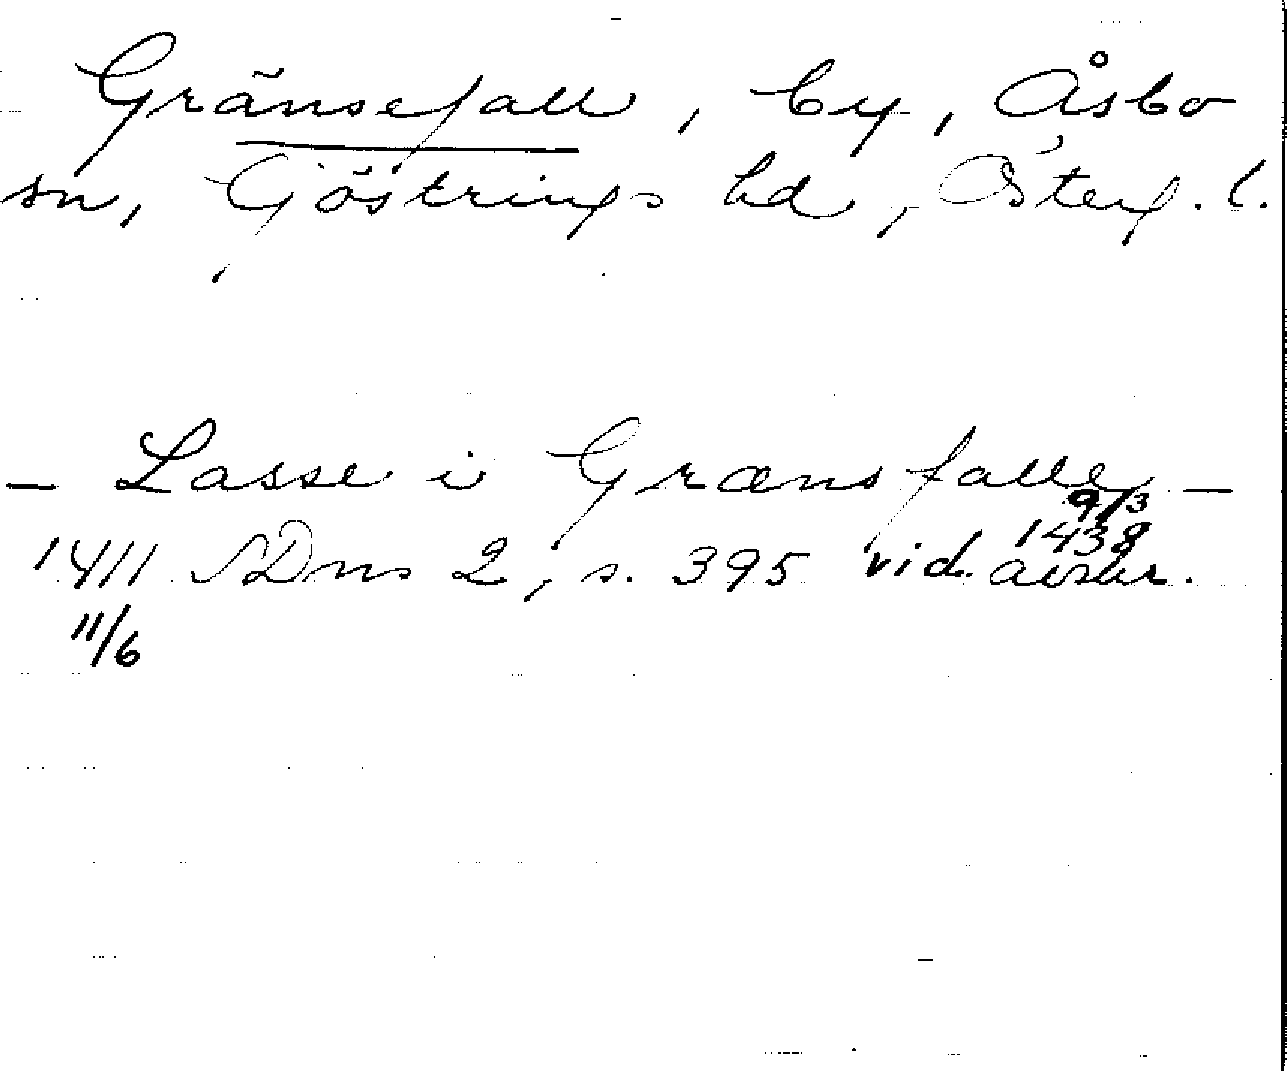 Gränsefall, by, Åsbo
sn, Göstrings hd, Österg. l.
- Lasse i Grænsfalle -
9/3
1438
1411 SDns 2, s. 395 vid. avskr.
11/6